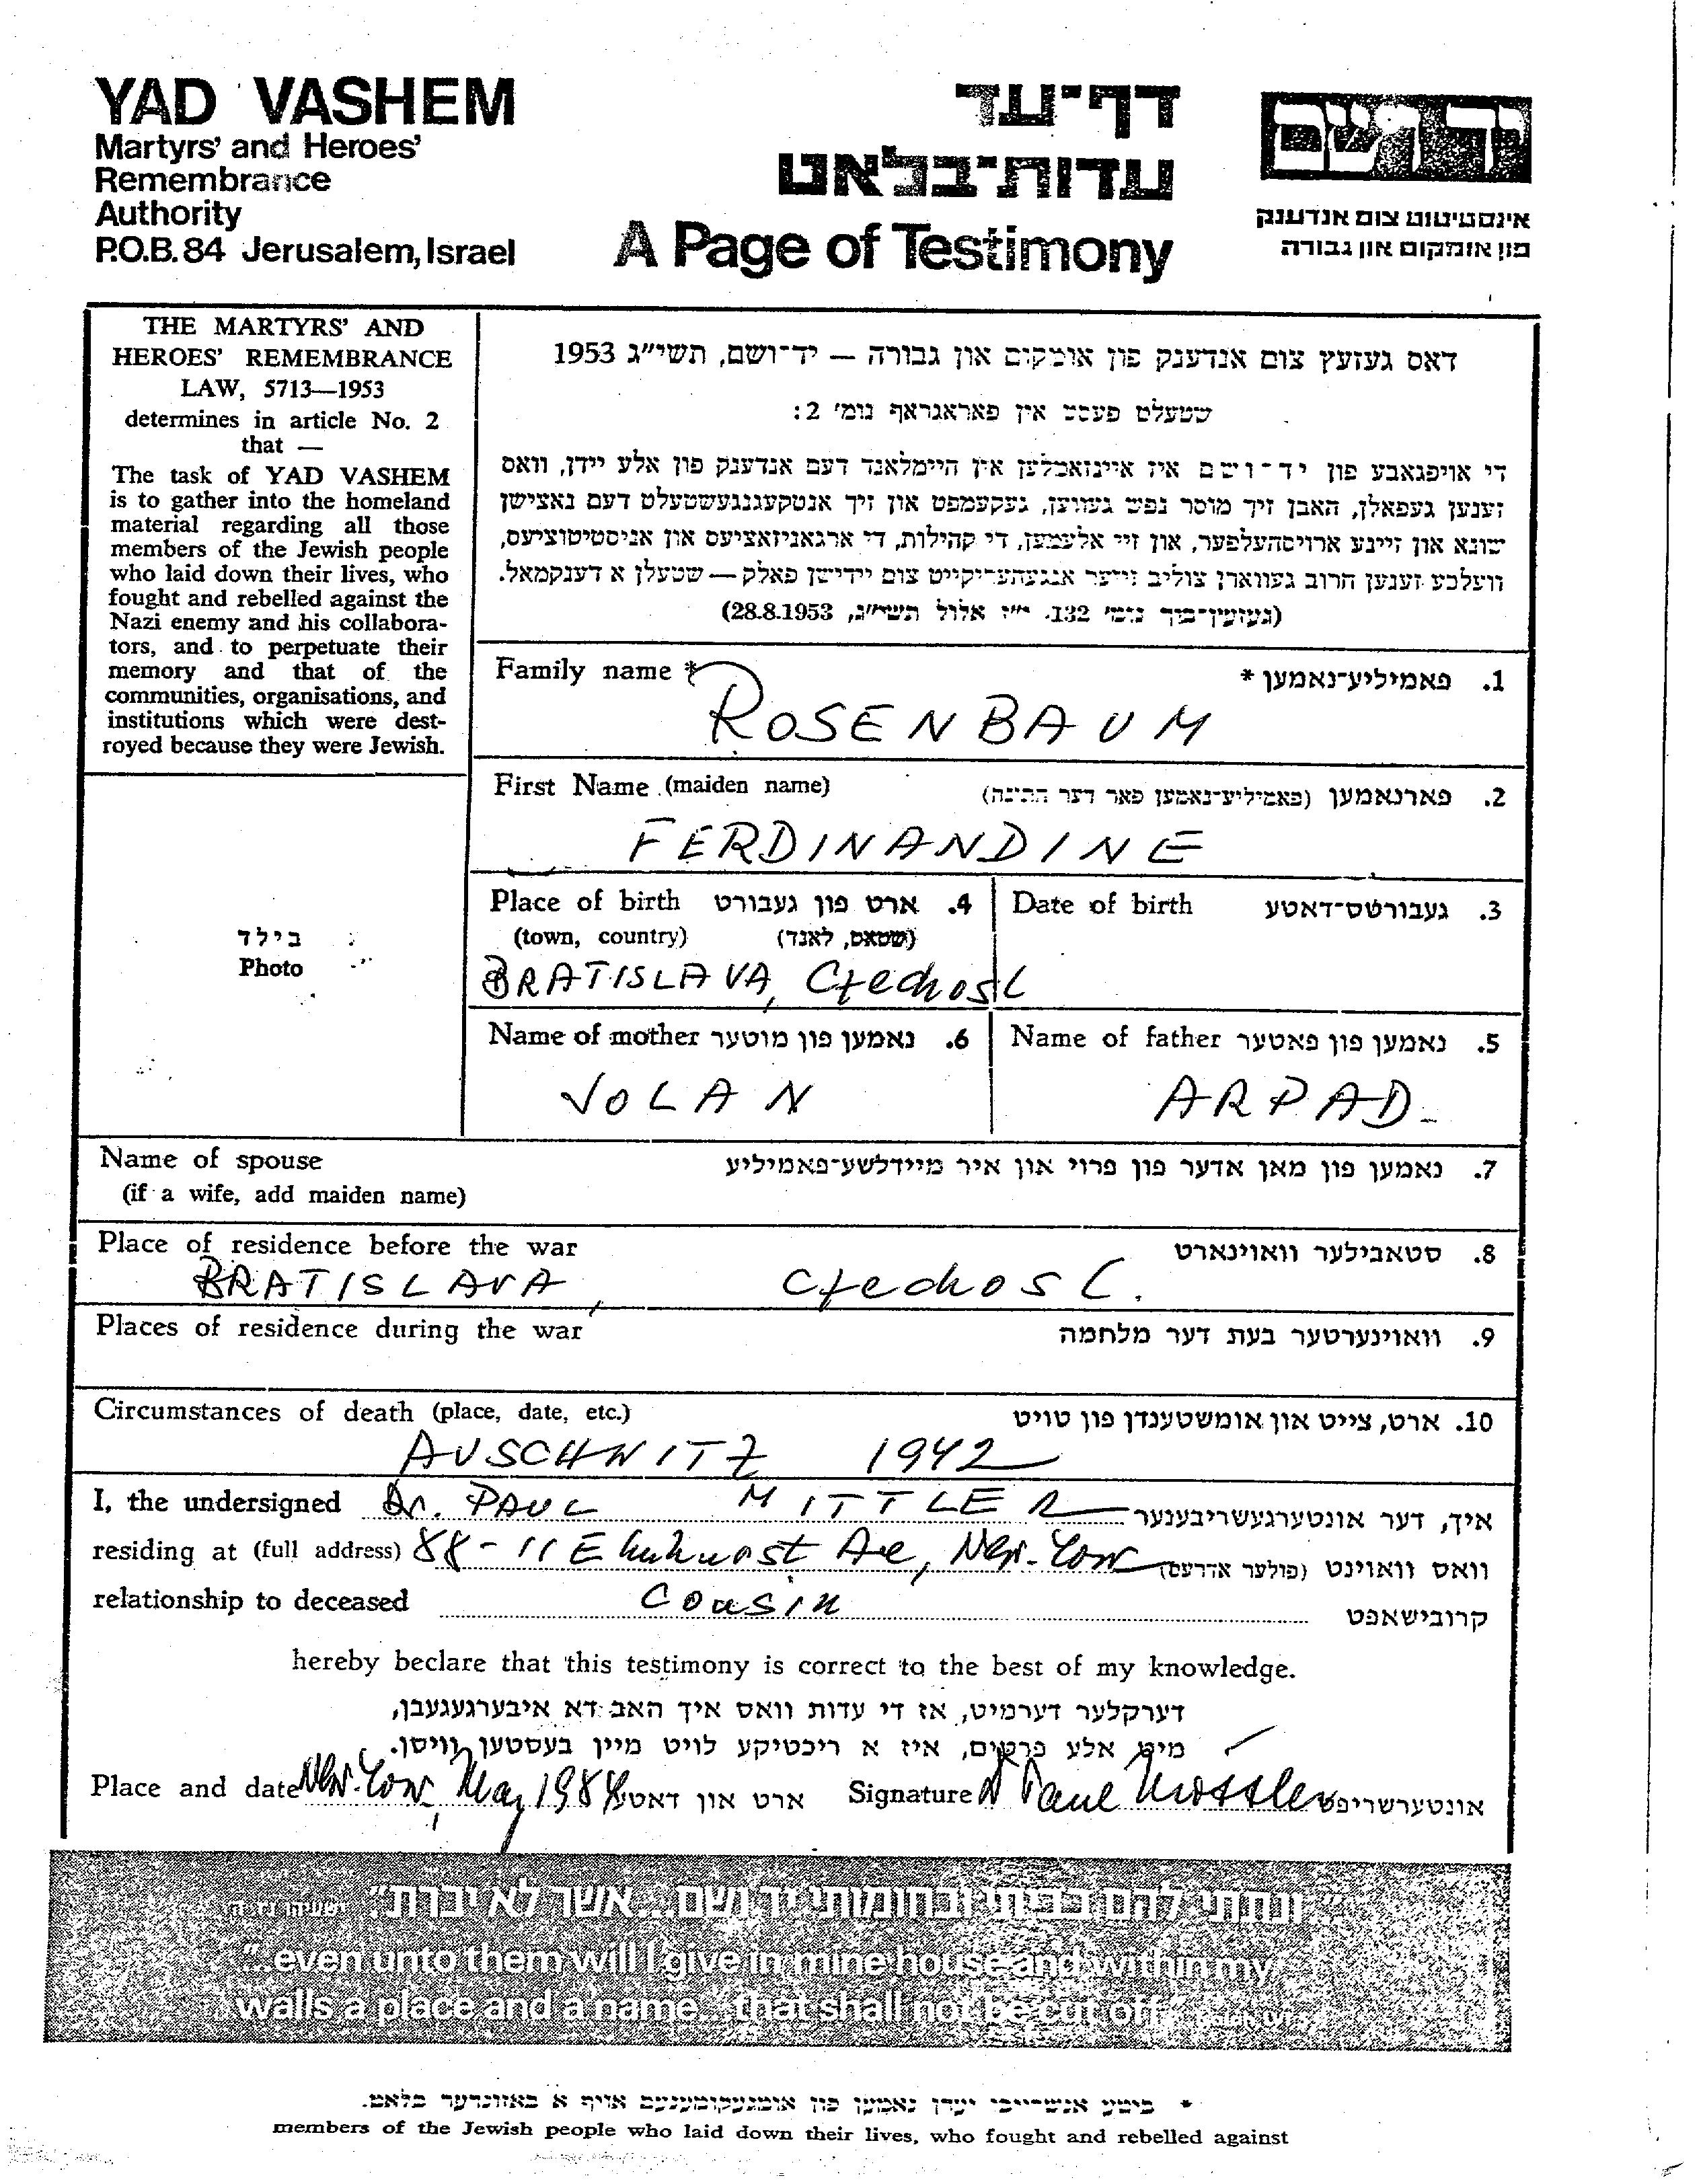 YAD VASHEM
Martyrs' and Heroes'
Remembrance
Authority
P.O.B. 84 Jerusalem, Israel
דף־עד
עדות־בלאט
A Page of Testimony
יד ושם
אינסטיטוט צום אנדענק
פון אומקום און גבורה
THE MARTYRS' AND
HEROES' REMEMBRANCE
LAW, 5713—1953
determines in article No. 2
that —
The task of YAD VASHEM
is to gather into the homeland
material regarding all those
members of the Jewish people
who laid down their lives, who
fought and rebelled against the
Nazi enemy and his collabora-
tors, and to perpetuate their
memory and that of the
communities, organisations, and
institutions which were dest-
royed because they were Jewish.
דאס געזעץ צום אנדענק פון אומקום און גבורה — יד־ושם, תשי״ג 1953
שטעלט פעסט אין פאראגראף נומ׳ 2:
די אויפגאבע פון יד־ושם איז איינזאמלען אין היימלאנד דעם אנדענק פון אלע יידן, וואס
זענען געפאלן, האבן זיך מוסר נפש געווען, געקעמפט און זיך אנטקעגנגעשטעלט דעם נאצישן
שונא און זיינע ארויסהעלפער, און זיי אלעמען, די קהילות, די ארגאניזאציעס און אינסטיטוציעס,
וועלכע זענען חרוב געווארן צוליב זייער אנגעהעריקייט צום יידישן פאלק — שטעלן א דענקמאל.
(געזעץ־בוך נומ׳ 132, י״ז אלול תשי״ג, 28.8.1953)
Family name * פאמיליע־נאמען * .1
ROSENBAUM
First Name (maiden name) פארנאמען (פאמיליע־נאמען פאר דער חתונה) .2
FERDINANDINE
Place of birth ארט פון געבורט .4
(town, country) (שטאט, לאנד)
BRATISLAVA, Czechosl
Date of birth געבורטס־דאטע .3
בילד
Photo
Name of mother נאמען פון מוטער .6
JOLAN
Name of father נאמען פון פאטער .5
ARPAD
Name of spouse נאמען פון מאן אדער פון פרוי און איר מיידלשע־פאמיליע .7
(if a wife, add maiden name)
Place of residence before the war סטאבילער וואוינארט .8
BRATISLAVA, Czechosl.
Places of residence during the war וואוינערטער בעת דער מלחמה .9
Circumstances of death (place, date, etc.) ארט, צייט און אומשטענדן פון טויט .10
AUSCHWITZ 1942
I, the undersigned Dr. PAUL MITTLER איך, דער אונטערגעשריבענער
residing at (full address) 88-11 Elmhurst Ave, New-York וואס וואוינט (פולער אדרעס)
relationship to deceased Cousin קרובישאפט
hereby beclare that this testimony is correct to the best of my knowledge.
דערקלער דערמיט, אז די עדות וואס איך האב דא איבערגעגעבן,
מיט אלע פרטים, איז א ריכטיקע לויט מיין בעסטען וויסן.
Place and date New-York, May 1988 ארט און דאטע Signature Dr Paul Mittler אונטערשריפט
"ונתתי להם בביתי ובחומותי יד ושם... אשר לא יכרת". ישעיהו נו, ה
"...even unto them will I give in mine house and within my
walls a place and a name... that shall not be cut off."
* ביטע אנשרייבן יעדן נאמען פון אומגעקומענעם אויף א באזונדער בלאט.
members of the Jewish people who laid down their lives, who fought and rebelled against